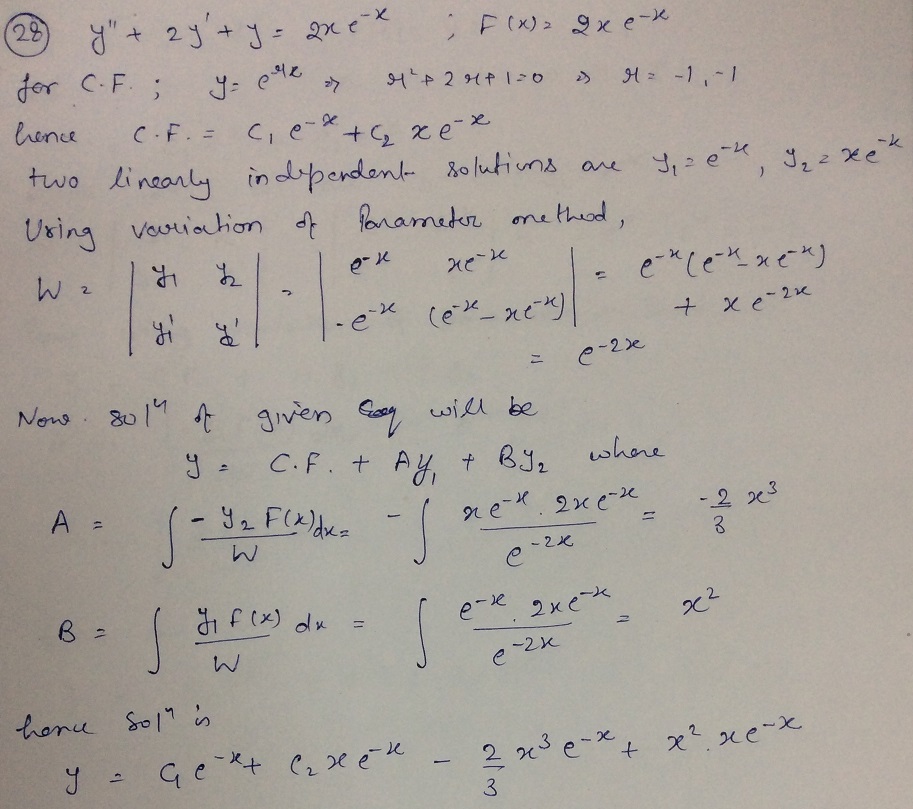 (28) y'' + 2y' + y = 2x e^{-x} ; F(x) = 2x e^{-x}
for C.F. ; y = e^{rx} ⇒ r² + 2r + 1 = 0 ⇒ r = -1, -1
hence C.F. = C₁ e^{-x} + C₂ x e^{-x}
two linearly independent solutions are y₁ = e^{-x}, y₂ = x e^{-x}
Using variation of Parameter method,
W = | y₁ y₂ ; y₁' y₂' | = | e^{-x} xe^{-x} ; -e^{-x} (e^{-x} - xe^{-x}) | = e^{-x}(e^{-x} - xe^{-x})
+ x e^{-2x}
= e^{-2x}
Now solⁿ of given eq will be
y = C.F. + Ay₁ + By₂ where
A = ∫ - y₂ F(x)/W dx = - ∫ x e^{-x} . 2x e^{-x} / e^{-2x} = -2/3 x³
B = ∫ y₁ F(x)/W dx = ∫ e^{-x} . 2x e^{-x} / e^{-2x} = x²
hence solⁿ is
y = C₁ e^{-x} + C₂ x e^{-x} - 2/3 x³ e^{-x} + x² . x e^{-x}